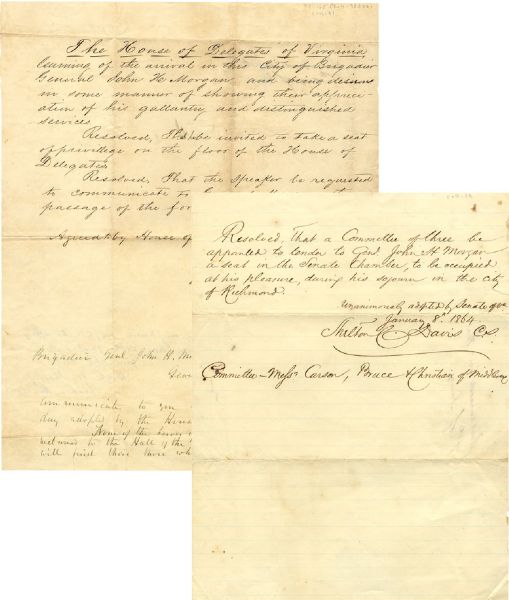 The House of Delegates of Virginia
learning of the arrival in this City of Brigadier
General John H. Morgan, and being desirous
in some manner of showing their appreci-
ation of his gallantry and distinguished
services
Resolved, That he be invited to take a seat
of privilege on the floor of the House of
Delegates
Resolved, That the Speaker be requested
to communicate to
passage of the for
Agreed to by House of
Brigadier Genl John H. Mo
communicate to you
day adopted by the House
None of the
returned to the Hall of the
will find there
Resolved, That a Committee of three be
appointed to tender to Genl. John H Morgan
a seat in the Senate Chamber, to be occupied
at his pleasure, during his sojourn in the city
of Richmond.
Unanimously adopted by Senate of Va
January 8th 1864
Shelton C. Davis C.S.
Committee - Messrs Carson, Bruce & Christian of Middlesex